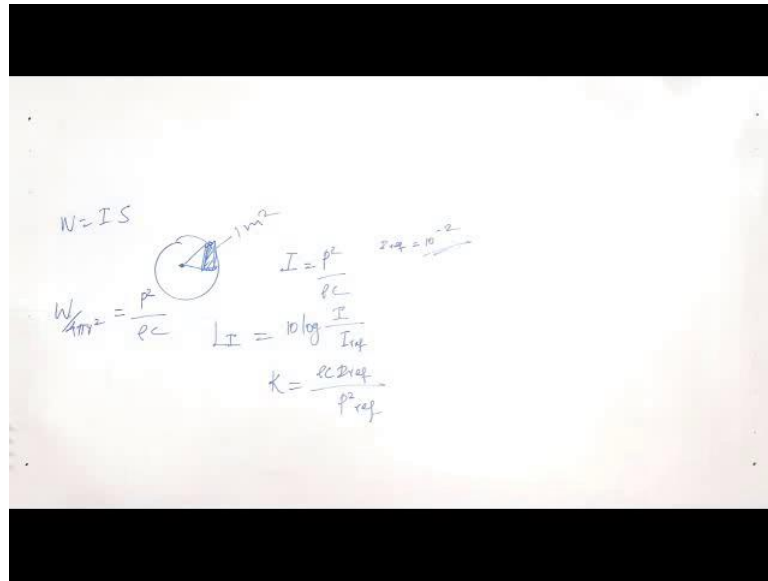 W = I S
1m²
I = P²/ρc
Iref = 10⁻²
W/4πr² = P²/ρc
L_I = 10 log I/Iref
K = ρc Iref/P²ref